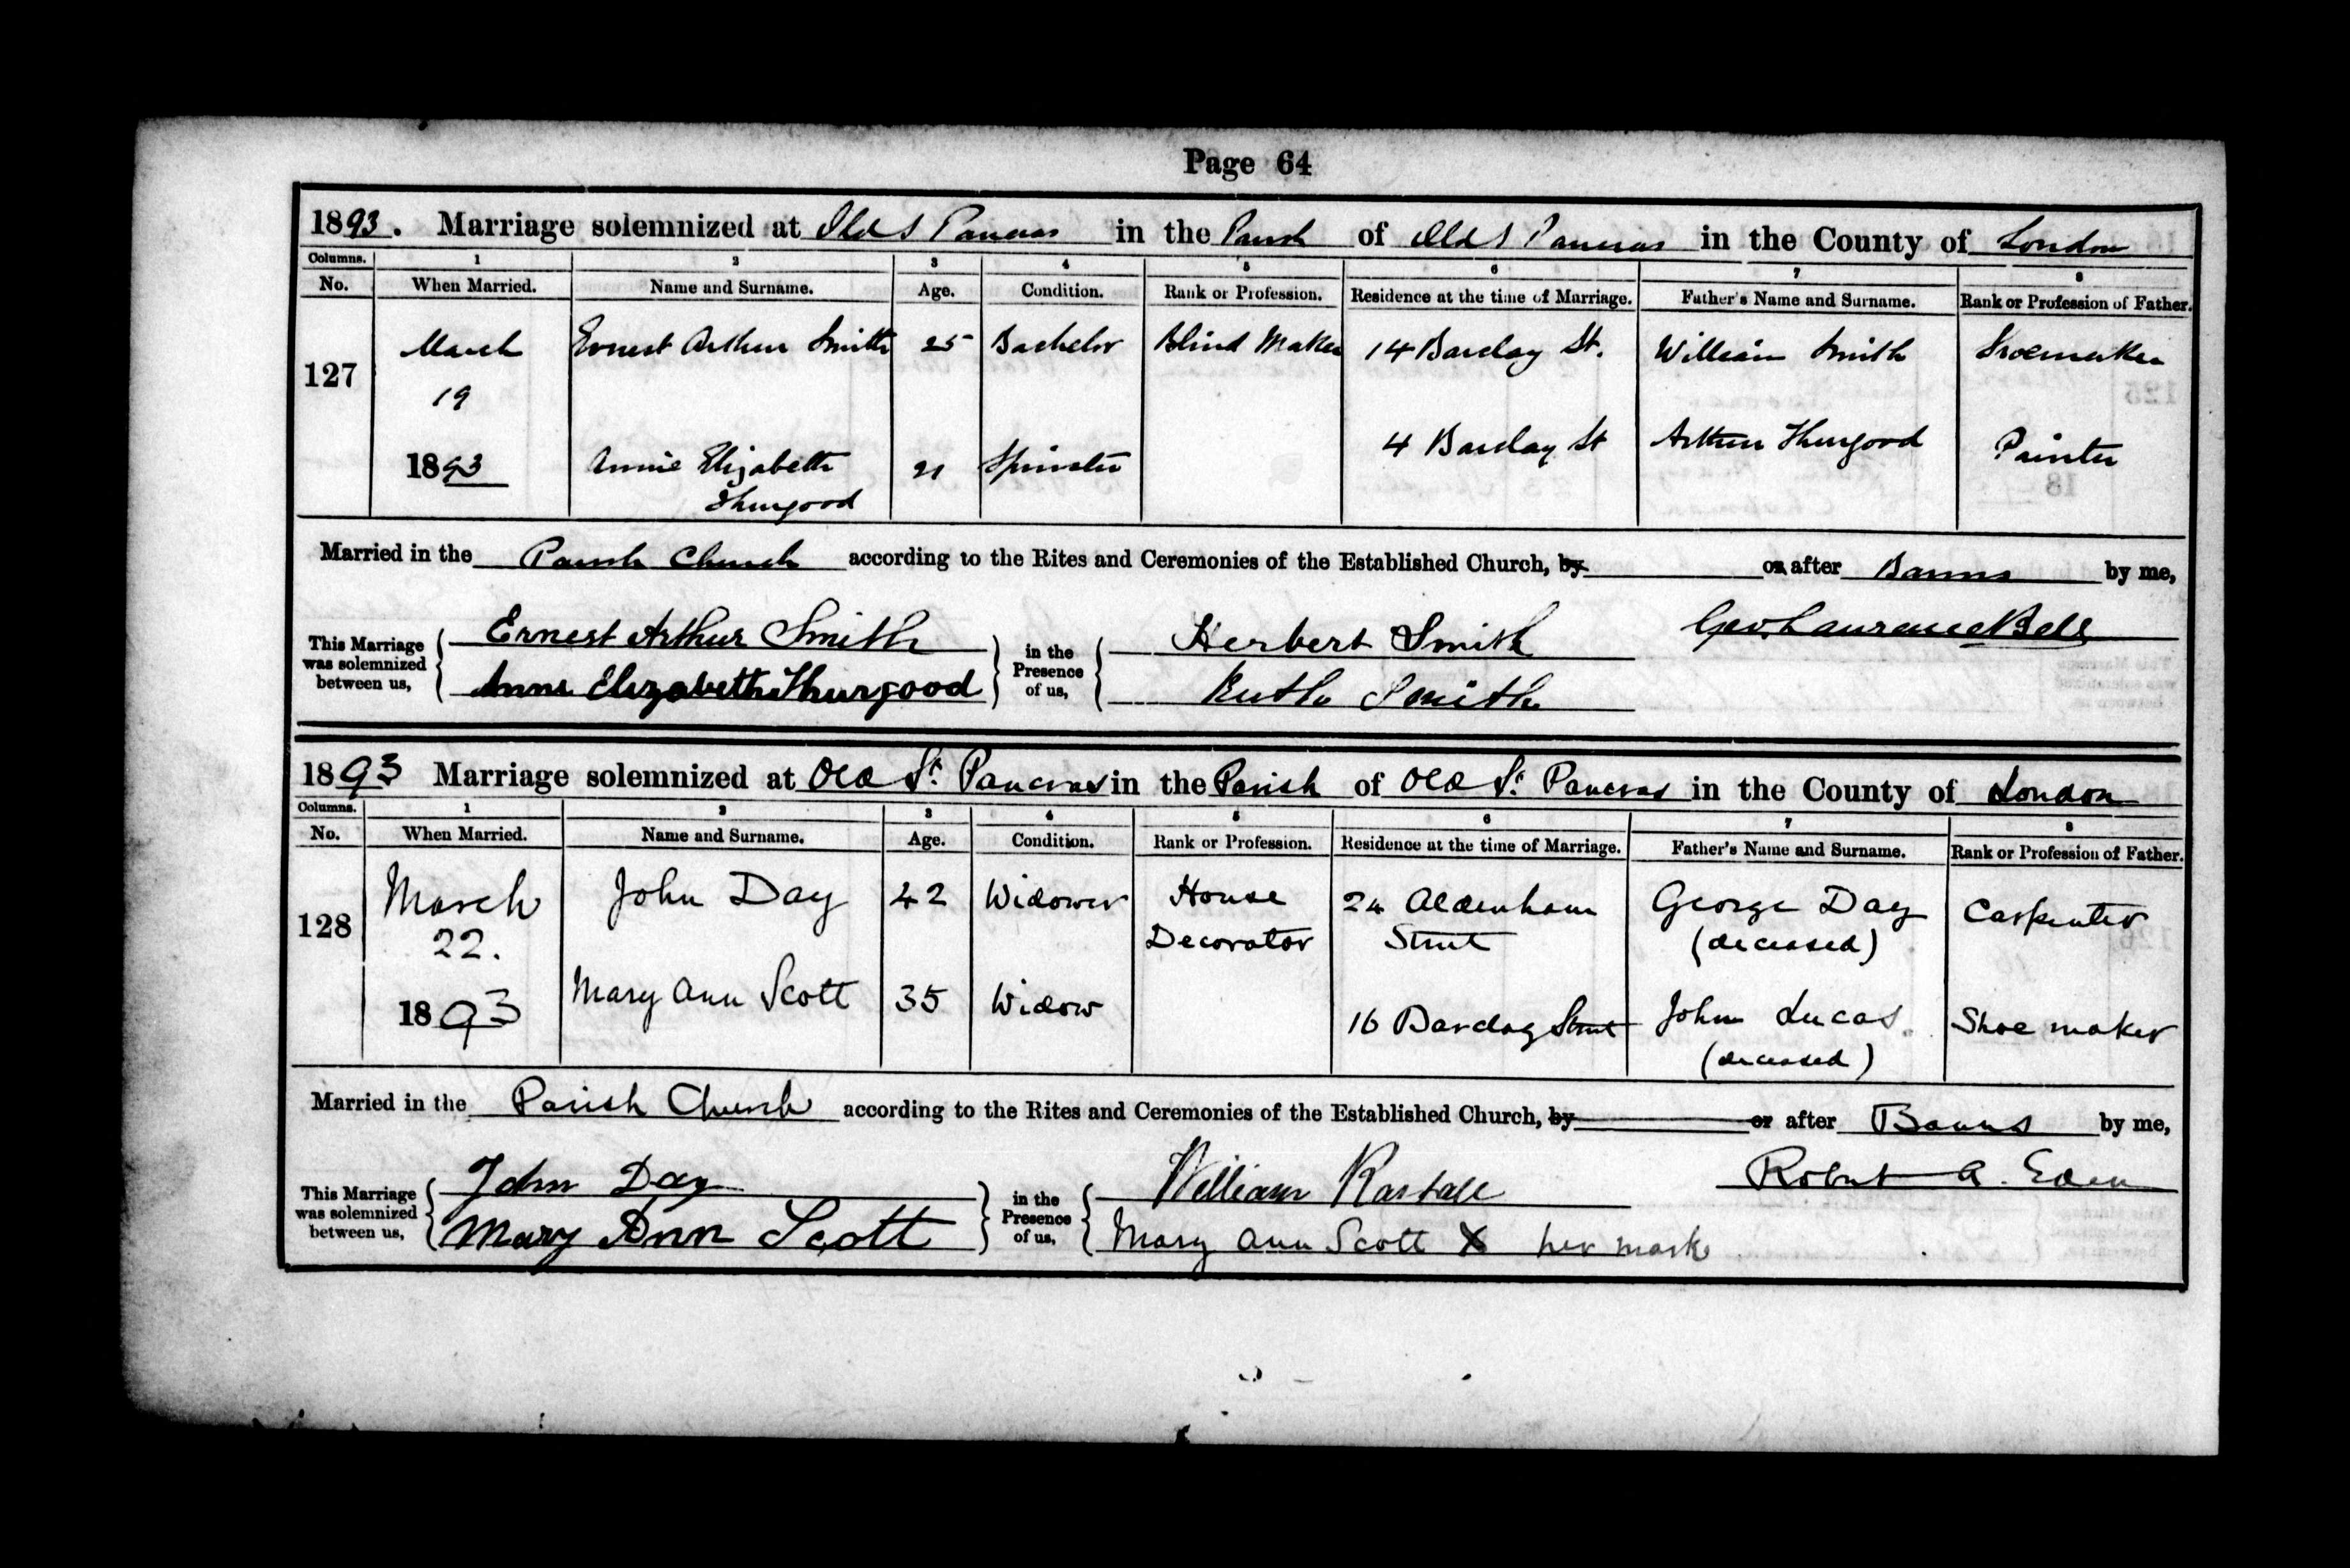 Page 64
1893. Marriage solemnized at Old S Pancras in the Parish of Old S Pancras in the County of London
Columns. 1 2 3 4 5 6 7 8
No. When Married. Name and Surname. Age. Condition. Rank or Profession. Residence at the time of Marriage. Father's Name and Surname. Rank or Profession of Father.
127 March 19 1893
Ernest Arthur Smith 25 Bachelor Blind Maker 14 Barclay St. William Smith Shoemaker
Annie Elizabeth Thurgood 21 Spinster 4 Barclay St Arthur Thurgood Painter
Married in the Parish Church according to the Rites and Ceremonies of the Established Church, by or after Banns by me,
This Marriage was solemnized between us, Ernest Arthur Smith in the Presence of us, Herbert Smith Geo. Laurence Bell
Annie Elizabeth Thurgood Ruth Smith
1893 Marriage solemnized at Old St. Pancras in the Parish of Old St. Pancras in the County of London
Columns. 1 2 3 4 5 6 7 8
No. When Married. Name and Surname. Age. Condition. Rank or Profession. Residence at the time of Marriage. Father's Name and Surname. Rank or Profession of Father.
128 March 22. 1893
John Day 42 Widower House Decorator 24 Aldenham Street George Day (deceased) Carpenter
Mary Ann Scott 35 Widow 16 Barclay Street John Lucas (deceased) Shoe maker
Married in the Parish Church according to the Rites and Ceremonies of the Established Church, by or after Banns by me,
This Marriage was solemnized between us, John Day in the Presence of us, William Rastall Robert A. Eden
Mary Ann Scott Mary Ann Scott X her mark